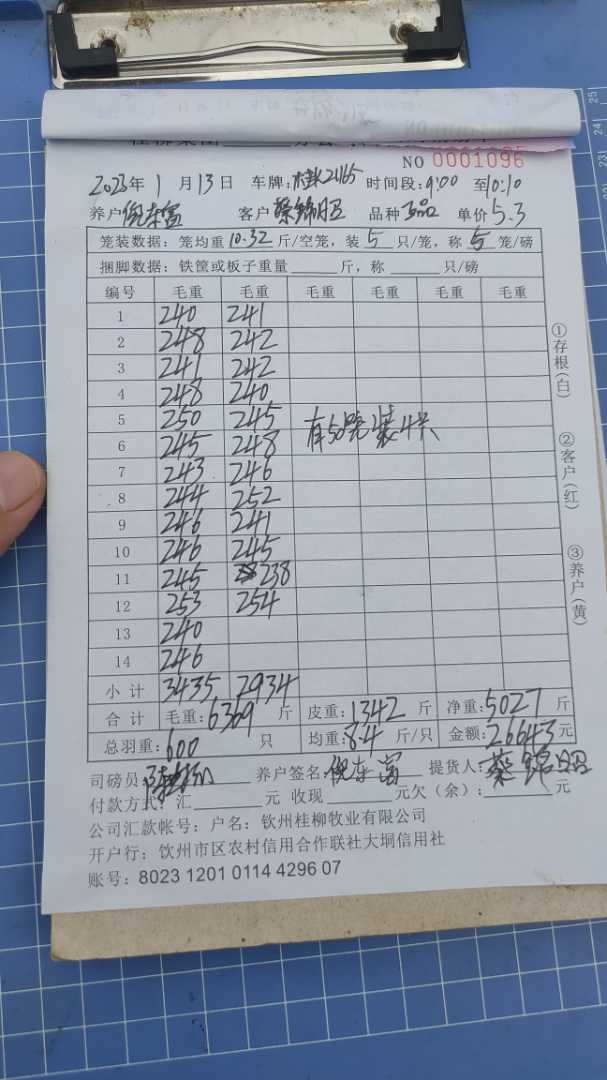 NO 0001096
2023年 1 月 13 日 车牌: 时间段: 9:00 至 10:10
养户 倪东富 客户 蔡锦昭 品种 单价 5.3
笼装数据: 笼均重 10.32 斤/空笼, 装 5 只/笼, 称 5 笼/磅
捆脚数据: 铁筐或板子重量 斤, 称 只/磅
编号 毛重 毛重 毛重 毛重 毛重 毛重
1 240 241
2 248 242
3 241 242
4 248 240
5 250 245
有50笼装4只
6 245 248
7 243 246
8 244 252
9 246 241
10 246 245
11 245 238
12 253 254
13 240
14 246
小计 3435 2934
合计 毛重: 6369 斤 皮重: 1342 斤 净重: 5027 斤
总羽重: 600 只 均重: 8.4 斤/只 金额: 26643 元
司磅员 养户签名: 倪东富 提货人: 蔡锦昭
付款方式: 汇 元 收现 元欠(余): 元
公司汇款帐号: 户名: 钦州桂柳牧业有限公司
开户行: 钦州市区农村信用合作联社大垌信用社
账号: 8023 1201 0114 4296 07
①存根(白)
②客户(红)
③养户(黄)